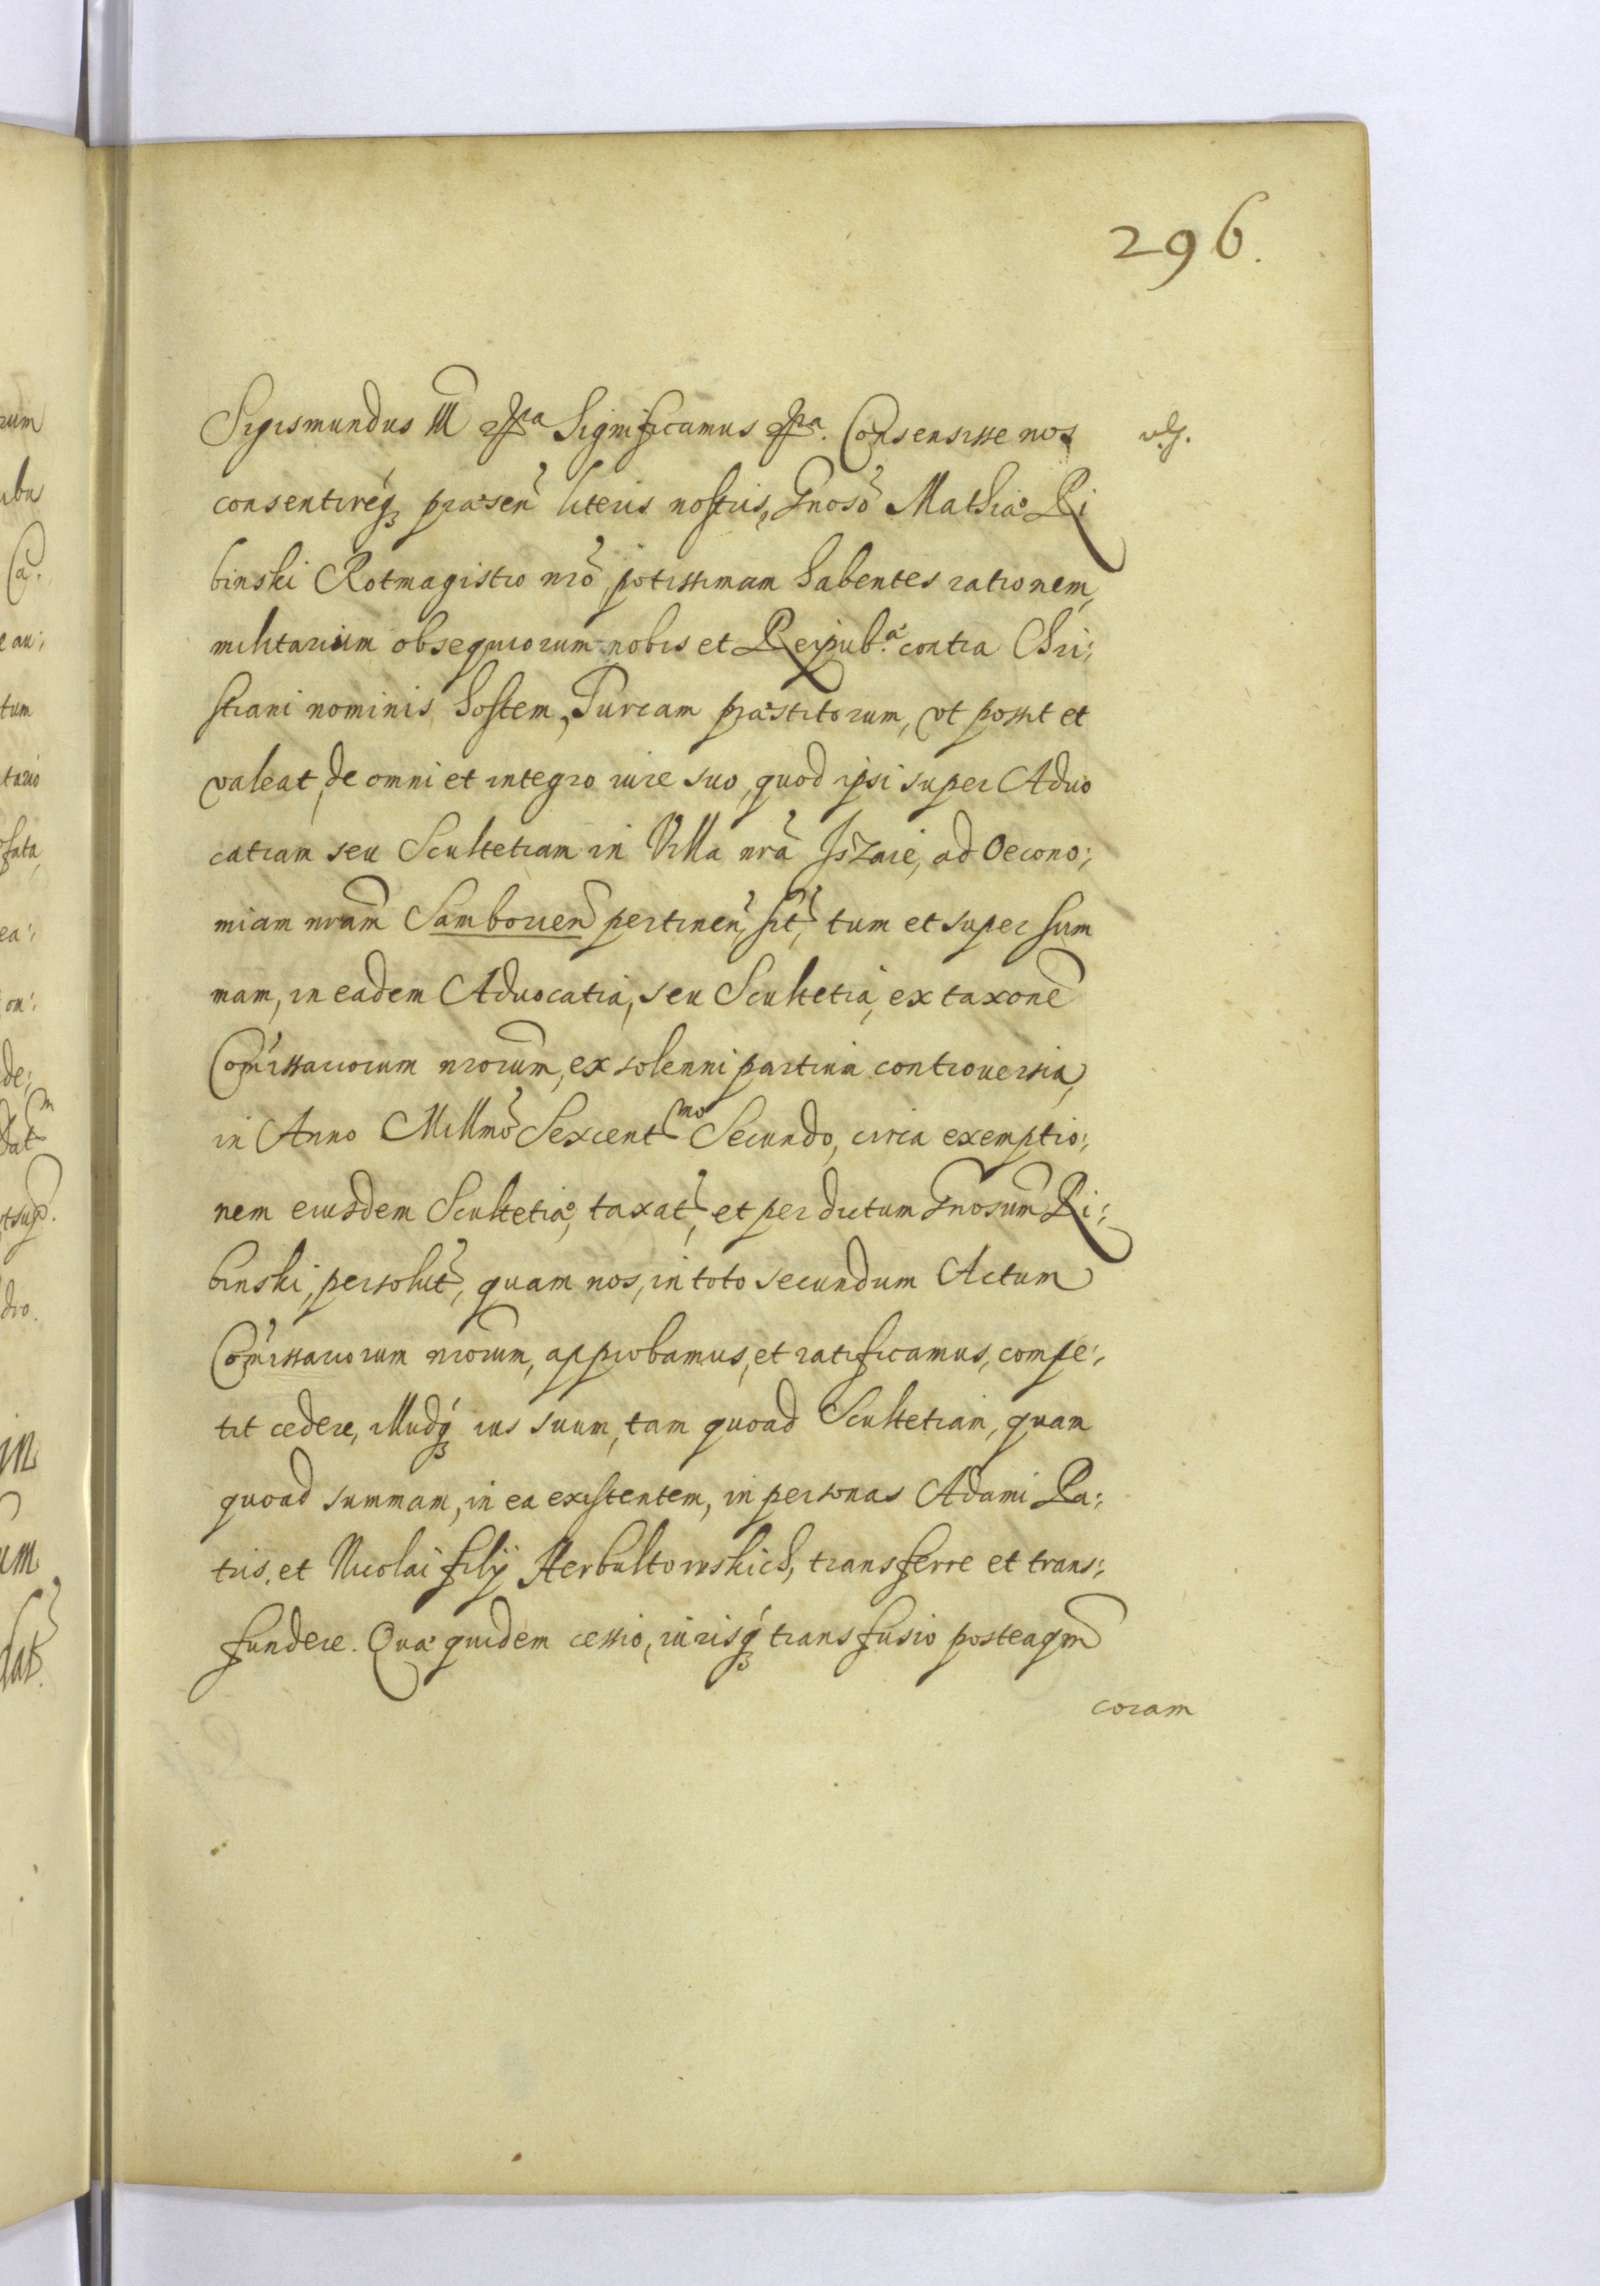 296.
Sigismundus III Significamus Consensisse nos
consentireq₃ præsen̄ literis nostris, Gnosō Mathiæ Ri
binski Rotmagistro nrō potissimam habentes rationem,
militarium obsequiorum nobis et Reipub.ᵃᵉ contra Chri:
stiani nominis hostem, Turcam præstitorum, vt possit et
valeat, de omni et integro iure suo, quod ipsi super Aduo
catiam seu Scultetiam in Villa nrā ad Oecono:
miam nram̄ Samborien̄ pertinen̄, sit̄, tum et super sum
mam, in eadem Aduocatia, seu Scultetia, ex taxonē
Com̄issariorum nrorum̄, ex solenni partium controuersia,
in Anno Millmō Sexcentᵐᵒ Secundo, circa exemptio:
nem eiusdem Scultetiæ, taxat̄, et per dictum Gnosum̄ Ri:
binski, persolut̄, quam nos, in toto secundum Actum
Com̄issariorum nrorum̄, approbamus, et ratificamus, compe:
tit cedere, illudq₃ ius suum, tam quoad Scultetiam, quam
quoad summam, in ea existentem, in personas Adami Pa:
tris, et Nicolai filij Herbultowskich, transferre et trans:
fundere. Quæ quidem cessio, iurisq₃ transfusio posteaqm̄
coram